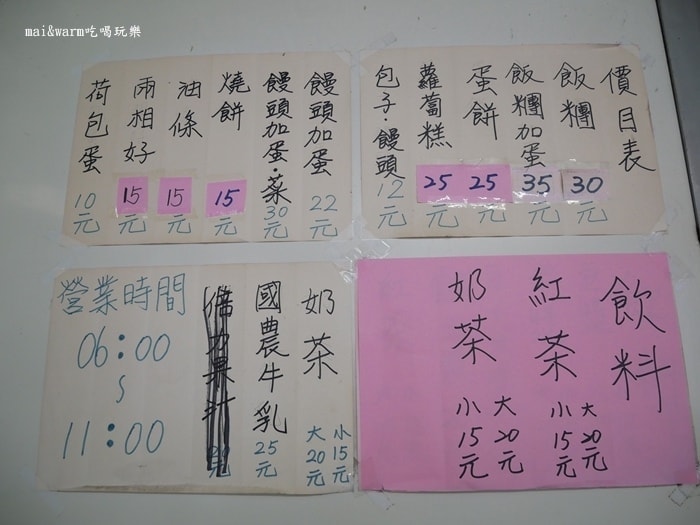 mai&warm吃喝玩樂
價目表
飯糰 30元
飯糰加蛋 35元
蛋餅 25元
蘿蔔糕 25元
包子·饅頭 12元
饅頭加蛋 22元
饅頭加蛋·菜 30元
燒餅 15元
油條 15元
兩相好 15元
荷包蛋 10元
飲料
紅茶 大20元 小15元
奶茶 大20元 小15元
奶茶 小15元 大20元
國農牛乳 25元
營業時間
06:00
~
11:00